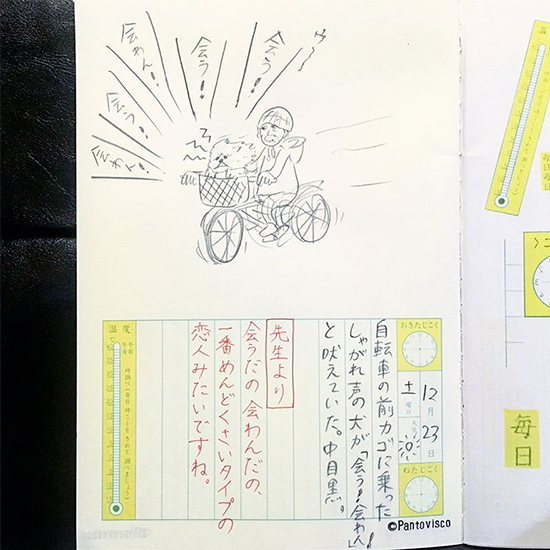 会わん!
会う!
会う!
会わん!
会う!
会わん!
おきたじこく
12月23日
土曜日
天気
ねたじこく
自転車の前カゴに乗った
しゃがれ声の犬が「会う!会わん!」
と吠えていた。中目黒。
先生より
会うだの会わんだの、
一番めんどくさいタイプの
恋人みたいですね。
温度
午前
午後
時調べ(毎日時こくをきめて調べましょう)
毎日
©Pantovisco